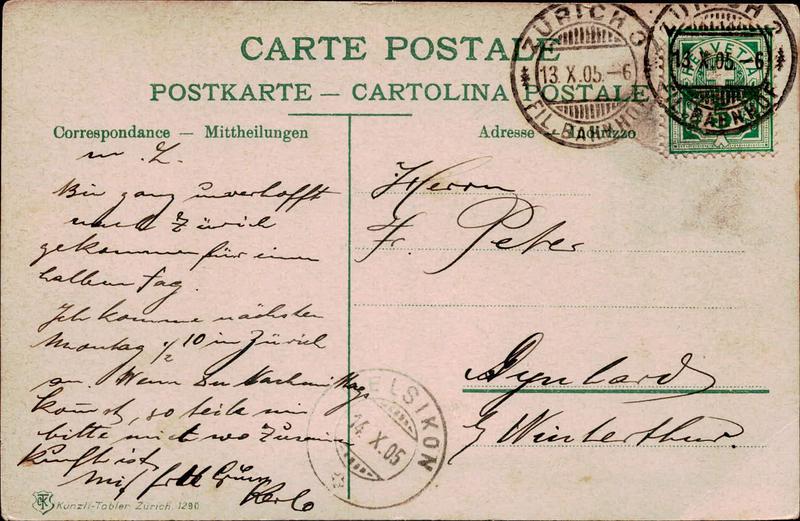 CARTE POSTALE
POSTKARTE — CARTOLINA POSTALE
Correspondance — Mittheilungen
Adresse
ZÜRICH
13. X. 05. – 6
FIL. BAHNHOF
ZÜRICH
13. X. 05. – 6
FIL. BAHNHOF
HELVETIA
m. L.
Bin ganz unverhofft
nach Zürich
gekommen für einen
halben Tag.
Ich komme nächsten
Montag ½ 10 in Zürich
an. Wenn Du Nachmittags
kommst, so teile mir
bitte mit wo Zusammen
kunft ist.
Mit
Herrn
Fr. Peter
Dynhard
b/ Winterthur.
ELSIKON
14. X. 05
Künzli-Tobler, Zürich. 1290